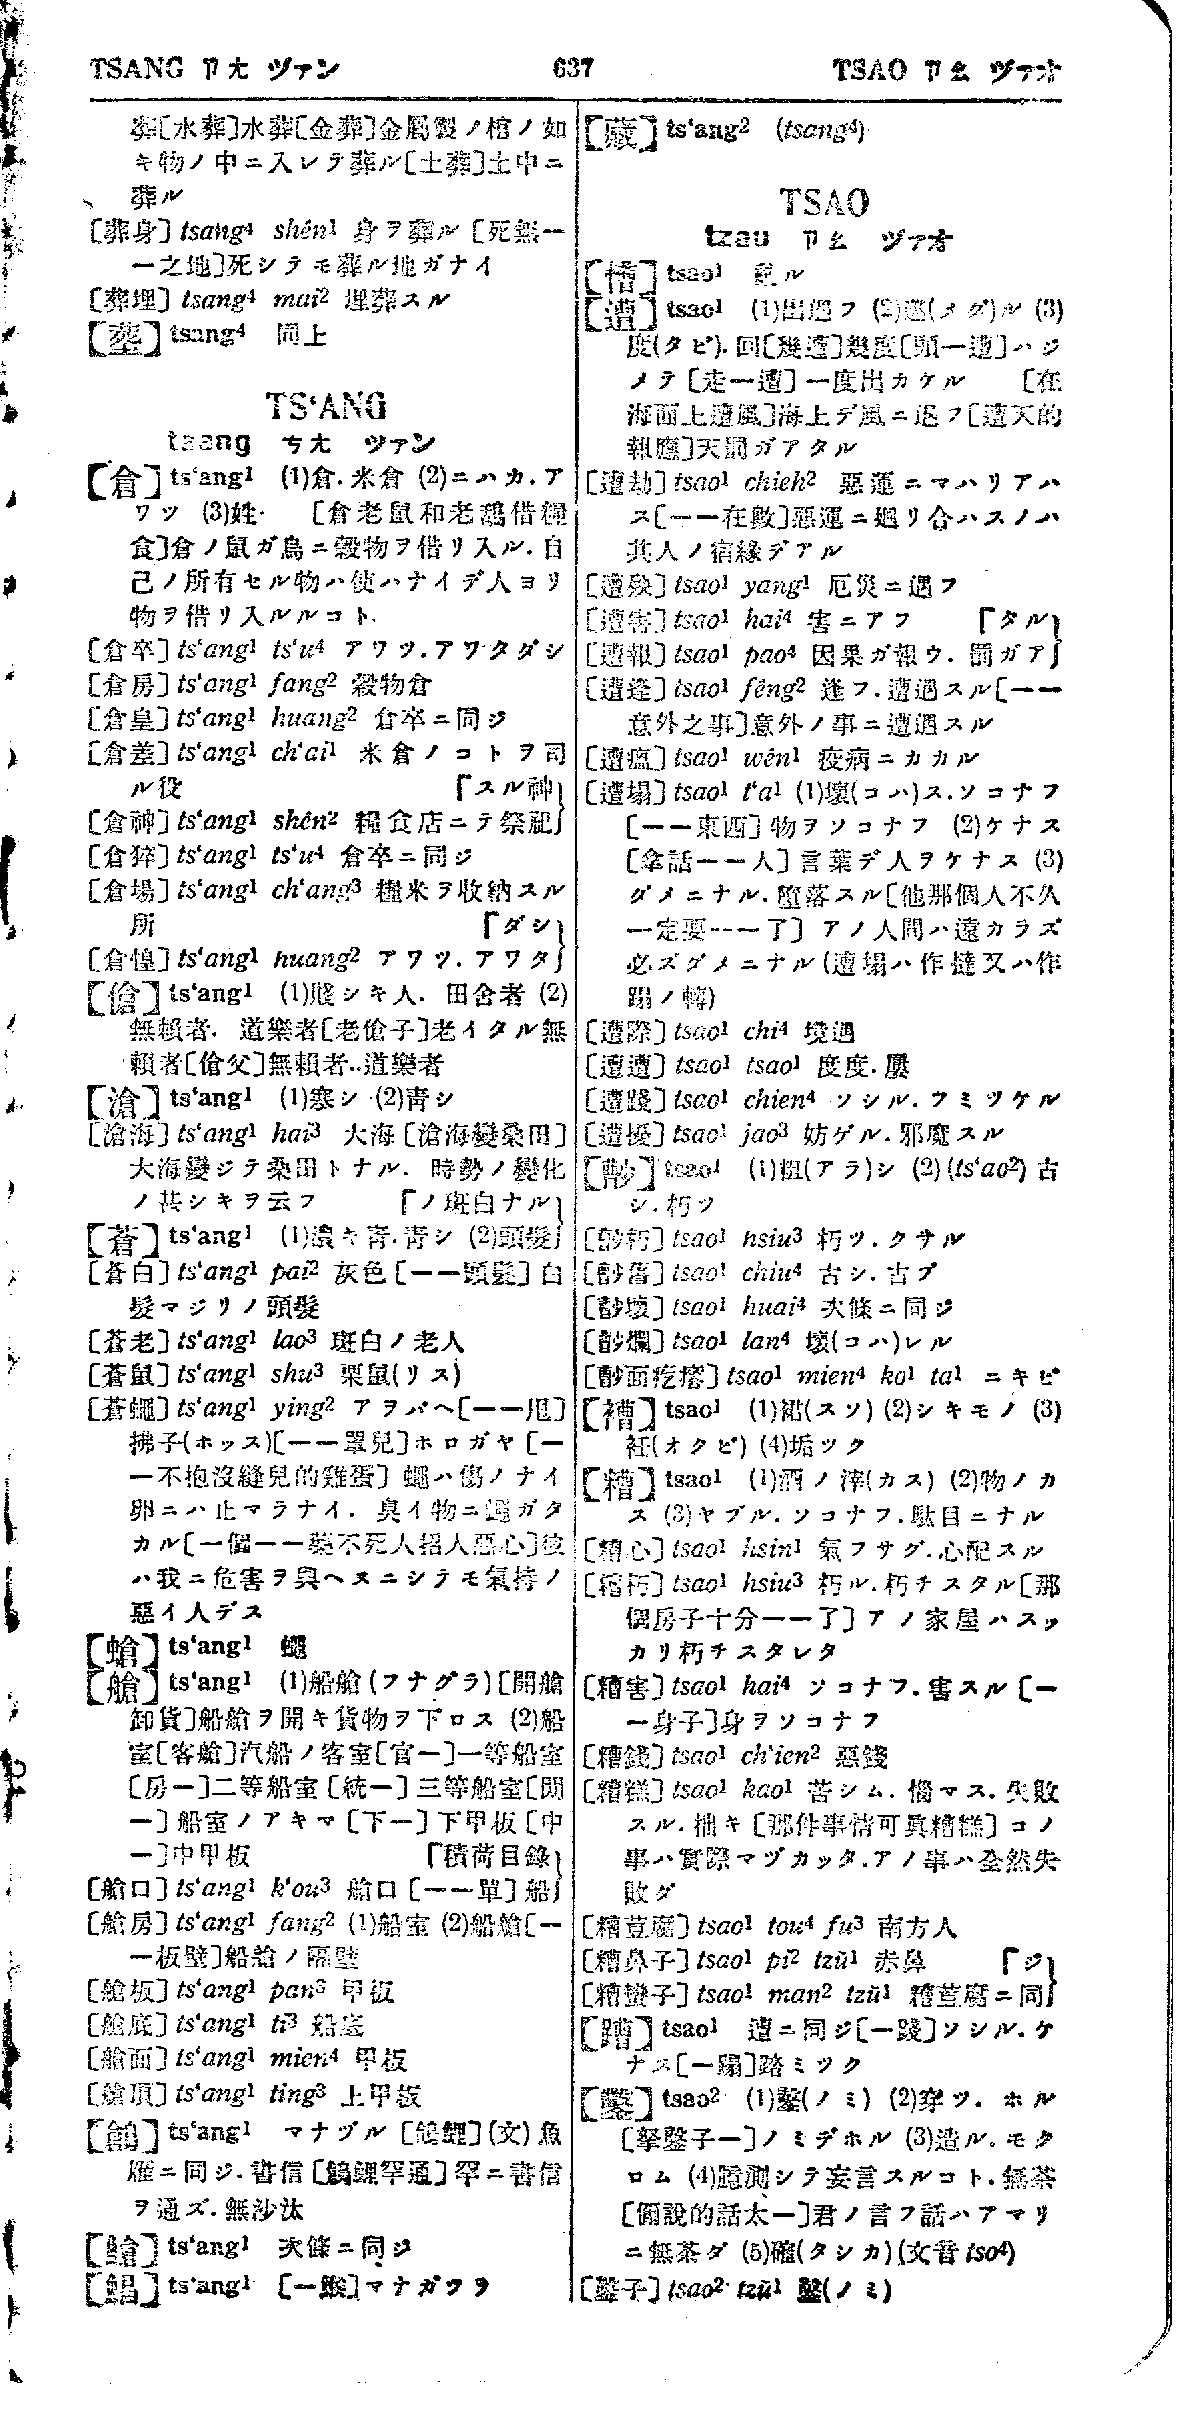 TSANG ㄗㄤ ヅァン 637 TSAO ㄗㄠ ヅァオ
葬[水葬]水葬[金葬]金屬製ノ棺ノ如
キ物ノ中ニ入レテ葬ル[土葬]土中ニ
葬ル
[葬身] tsang⁴ shên¹ 身ヲ葬ル [死無一
一之地]死シテモ葬ル地ガナイ
[葬埋] tsang⁴ mai² 埋葬スル
【塟】tsang⁴ 同上
TS'ANG
tsang ㄘㄤ ツァン
【倉】ts'ang¹ (1)倉.米倉 (2)ニハカ.ア
ワツ (3)姓. [倉老鼠和老鴰借糧
食]倉ノ鼠ガ烏ニ穀物ヲ借リ入ル.自
己ノ所有セル物ハ使ハナイデ人ヨリ
物ヲ借リ入ルルコト.
[倉卒] ts'ang¹ ts'u⁴ アワツ.アワタダシ
[倉房] ts'ang¹ fang² 穀物倉
[倉皇] ts'ang¹ huang² 倉卒ニ同ジ
[倉差] ts'ang¹ ch'ai¹ 米倉ノコトヲ司
ル役 「スル神
[倉神] ts'ang¹ shên² 糧食店ニテ祭祀
[倉猝] ts'ang¹ ts'u⁴ 倉卒ニ同ジ
[倉場] ts'ang¹ ch'ang³ 糧米ヲ收納スル
所 「ダシ
[倉惶] ts'ang¹ huang² アワツ.アワタ
【傖】ts'ang¹ (1)賤シキ人. 田舍者 (2)
無賴者. 道樂者[老傖子]老イタル無
賴者[傖父]無賴者..道樂者
【滄】ts'ang¹ (1)寒シ (2)靑シ
[滄海] ts'ang¹ hai³ 大海 [滄海變桑田]
大海變ジテ桑田トナル. 時勢ノ變化
ノ甚シキヲ云フ 「ノ斑白ナル
【蒼】ts'ang¹ (1)濃キ靑.靑シ (2)頭髮
[蒼白] ts'ang¹ pai² 灰色 [一一頭髮] 白
髮マジリノ頭髮
[蒼老] ts'ang¹ lao³ 斑白ノ老人
[蒼鼠] ts'ang¹ shu³ 栗鼠(リス)
[蒼蠅] ts'ang¹ ying² アヲバヘ[一一甩]
拂子(ホッス)[一一罩兒]ホロガヤ [一
一不抱沒縫兒的雞蛋] 蠅ハ傷ノナイ
卵ニハ止マラナイ. 臭イ物ニ蠅ガタ
カル[一個一一藥不死人招人惡心]彼
ハ我ニ危害ヲ與ヘヌニシテモ氣持ノ
惡イ人デス
【螥】ts'ang¹ 蠅
【艙】ts'ang¹ (1)船艙 (フナグラ) [開艙
卸貨]船艙ヲ開キ貨物ヲ下ロス (2)船
室[客艙]汽船ノ客室[官一]一等船室
[房一]二等船室 [統一] 三等船室[閒
一] 船室ノアキマ [下一] 下甲板 [中
一]中甲板 「積荷目錄
[艙口] ts'ang¹ k'ou³ 艙口 [一一單] 船
[艙房] ts'ang¹ fang² (1)船室 (2)船艙[一
一板壁]船艙ノ隔壁
[艙板] ts'ang¹ pan³ 甲板
[艙底] ts'ang¹ ti³ 船底
[艙面] ts'ang¹ mien⁴ 甲板
[艙頂] ts'ang¹ ting³ 上甲板
【鶬】ts'ang¹ マナヅル [鶬鯉] (文) 魚
雁ニ同ジ.書信 [鶬鯉罕通] 罕ニ書信
ヲ通ズ.無沙汰
【鰪】ts'ang¹ 次條ニ同ジ
【鯧】ts'ang¹ [一鯸]マナガツヲ
【藏】ts'ang² (tsang⁴)
TSAO
tzau ㄗㄠ ヅァオ
【傮】tsao¹ 亂ル
【遭】tsao¹ (1)出遇フ (2)廻(メグ)ル (3)
度(タビ).回[幾遭]幾度[頭一遭]ハジ
メテ [走一遭] 一度出カケル [在
海面上遭風]海上デ風ニ遇フ[遭天的
報應]天罰ガアタル
[遭劫] tsao¹ chieh² 惡運ニマハリアハ
ス[一一在數]惡運ニ廻リ合ハスノハ
其人ノ宿緣デアル
[遭殃] tsao¹ yang¹ 厄災ニ遇フ
[遭害] tsao¹ hai⁴ 害ニアフ 「タル
[遭報] tsao¹ pao⁴ 因果ガ報ウ. 罰ガア
[遭逢] tsao¹ fêng² 逢フ.遭遇スル[一一
意外之事]意外ノ事ニ遭遇スル
[遭瘟] tsao¹ wên¹ 疫病ニカカル
[遭塌] tsao¹ t'a¹ (1)壞(コハ)ス.ソコナフ
[一一東西] 物ヲソコナフ (2)ケナス
[拿話一一人] 言葉デ人ヲケナス (3)
ダメニナル.墮落スル[他那個人不久
一定要一一了] アノ人間ハ遠カラズ
必ズダメニナル (遭塌ハ作撻又ハ作
蹋ノ轉)
[遭際] tsao¹ chi⁴ 境遇
[遭遭] tsao¹ tsao¹ 度度.屢
[遭踐] tsao¹ chien⁴ ソシル.フミツケル
[遭擾] tsao¹ jao³ 妨ゲル.邪魔スル
tsao¹ (1)粗(アラ)シ (2) (ts'ao²) 古
シ.朽ツ
tsao¹ hsiu³ 朽ツ.クサル
tsao¹ chiu⁴ 古シ.古ブ
tsao¹ huai⁴ 次條ニ同ジ
tsao¹ lan⁴ 壞(コハ)レル
tsao¹ mien⁴ ko¹ ta¹ ニキビ
【褿】tsao¹ (1)裾(スソ) (2)シキモノ (3)
衽(オクビ) (4)垢ツク
【糟】tsao¹ (1)酒ノ滓(カス) (2)物ノカ
ス (3)ヤブル.ソコナフ.駄目ニナル
[糟心] tsao¹ hsin¹ 氣フサグ.心配スル
[糟朽] tsao¹ hsiu³ 朽ル.朽チスタル[那
個房子十分一一了] アノ家屋ハスッ
カリ朽チスタレタ
[糟害] tsao¹ hai⁴ ソコナフ.害スル [一
一身子]身ヲソコナフ
[糟錢] tsao¹ ch'ien² 惡錢
[糟糕] tsao¹ kao¹ 苦シム. 惱マス.失敗
スル.拙キ [那件事情可眞糟糕] コノ
事ハ實際マヅカッタ.アノ事ハ全然失
敗ダ
[糟荳腐] tsao¹ tou⁴ fu³ 南方人
[糟鼻子] tsao¹ pi² tzŭ¹ 赤鼻 「ジ
[糟蠻子] tsao¹ man² tzŭ¹ 糟荳腐ニ同
【蹧】tsao¹ 遭ニ同ジ[一踐]ソシル.ケ
ナス[一蹋]踏ミツク
【鑿】tsao² (1)鑿(ノミ) (2)穿ツ. ホル
[拏鑿子一]ノミデホル (3)造ル.モク
ロム (4)臆測シテ妄言スルコト.無茶
[價說的話太一]君ノ言フ話ハアマリ
ニ無茶ダ (5)確(タシカ) (文音 tso⁴)
[鑿子] tsao² tzŭ¹ 鑿(ノミ)